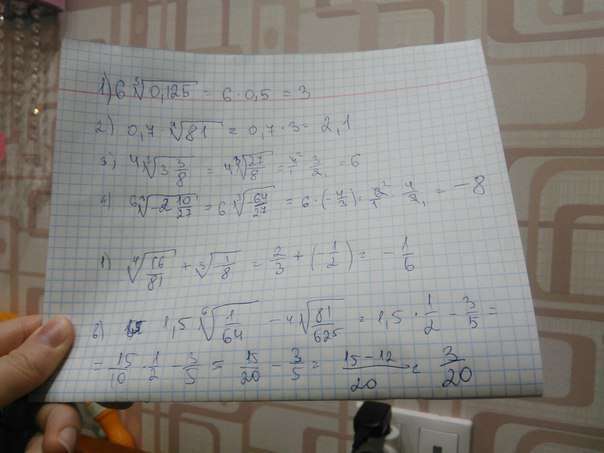 1) 6 ∛0,125 = 6 · 0,5 = 3
2) 0,7 ∜81 = 0,7 · 3 = 2,1
3) 4 ∛3 3/8 = 4 ∛27/8 = 4/1 · 3/2 = 6
6 ∛-2 10/27 = 6 · ∛64/27 = 6 · (-4/3) = · = -8
1) ∜16/81 + ∛1/8 = 2/3 + (-1/2) = -1/6
6) 1,5 ⁶√1/64 - ∜81/625 = 1,5 · 1/2 - 3/5 =
= 15/10 · 1/2 - 3/5 = 15/20 - 3/5 = 15-12/20 = 3/20